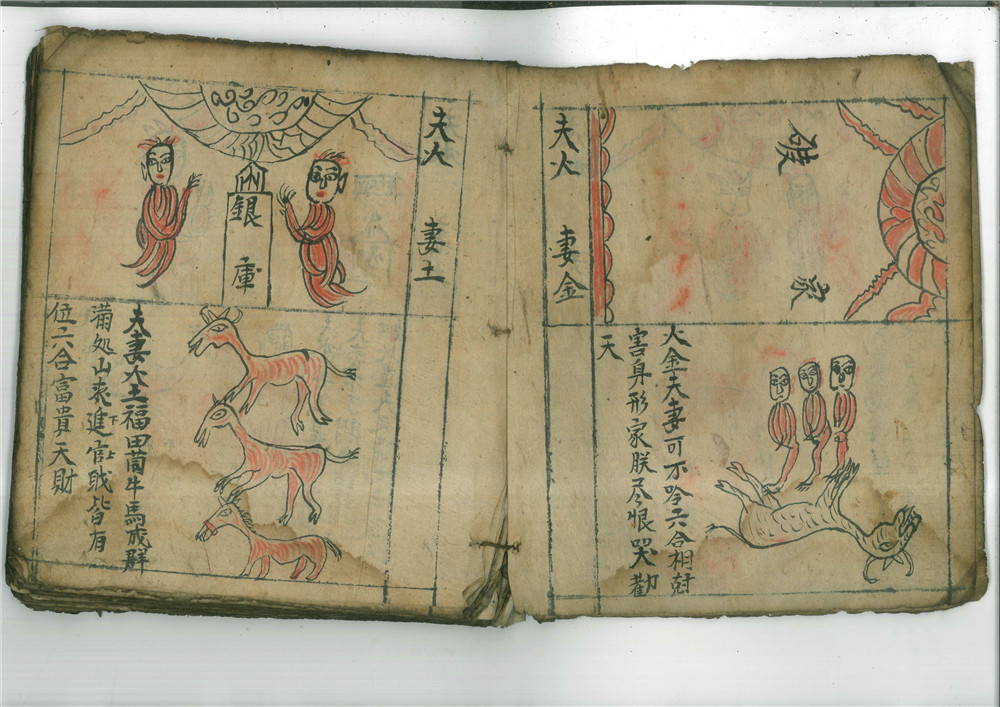 破家
夫火 妻金
火金夫妻可不吟六合相尅
害身形家朕尽恨哭勸
天
夫火 妻土
銀庫
夫妻火土福田茼牛馬成群
滿処山来進官戝皆有
下上
位六合富貴天財